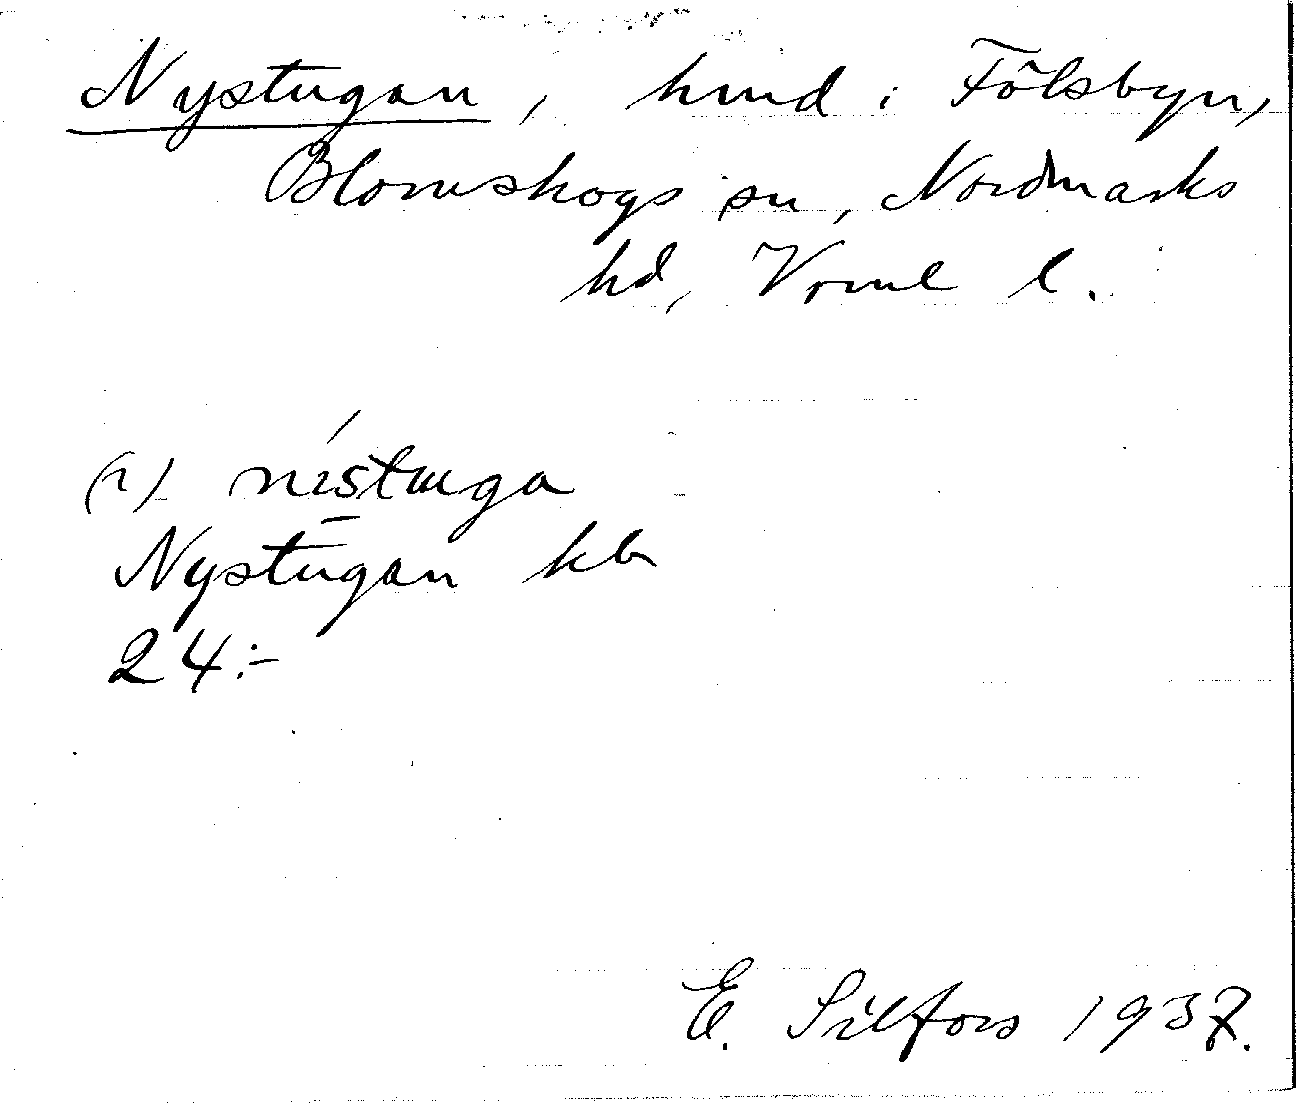 Nystugan, hmd i Fölsbyn,
Blomskogs sn, Nordmarks
hd, Vrml l.
(n) nistuga
Nystugan kb
24:-
E. Silfors 1937.